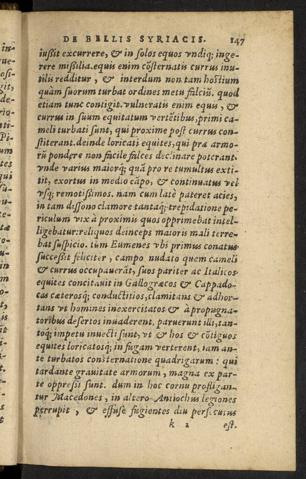 DE BELLIS SYRIACIS. 147
iussit excurrere, & in solos equos vndiq; inge-
rere missilia. equis enim cõsternatis currus inu-
tilis redditur, & interdum non tam hostium
quàm suorum turbat ordines metu falciũ. quod
etiam tunc contigit. vulneratis enim equis, &
curru in suum equitatum vertẽtibus, primi ca-
meli turbati sunt, qui proxime post currus con-
stiterant. deinde loricati equites, qui præ armo-
rũ pondere non facile falces declinare poterant.
vnde varius maiorq́; quã pro re tumultus extí-
tit, exortus in medio cãpo, & continuatus vel
vsq; remotissimos. nam cum latè pateret acies,
in tam dissono clamore tantaq́; trepidatione pe-
riculum vix à proximis quos opprimebat intel-
ligebatur: reliquos deinceps maioris mali terre-
bat suspicio. tùm Eumenes vbi primus conatus
successit feliciter, campo nudato quem cameli
& currus occupauerãt, suos pariter ac Italicos
equites concitauit in Gallogræcos & Cappado-
cas cæterosq; conductitios, clamitans & adhor-
tans vt homines inexercitatos & à propugna-
toribus desertos inuaderent. paruerunt illi, tan-
toq́; impetu inuecti sunt, vt & hos & cõtiguos
equites loricatosq; in fugam verterent, iam an-
te turbatos consternatione quadrigarum: qui
tardante grauitate armorum, magna ex par-
te oppressi sunt. dum in hoc cornu profligan-
tur Macedones, in altero Antiochus legiones
perrupit, & effusè fugientes diu persecutus
k 2 est.